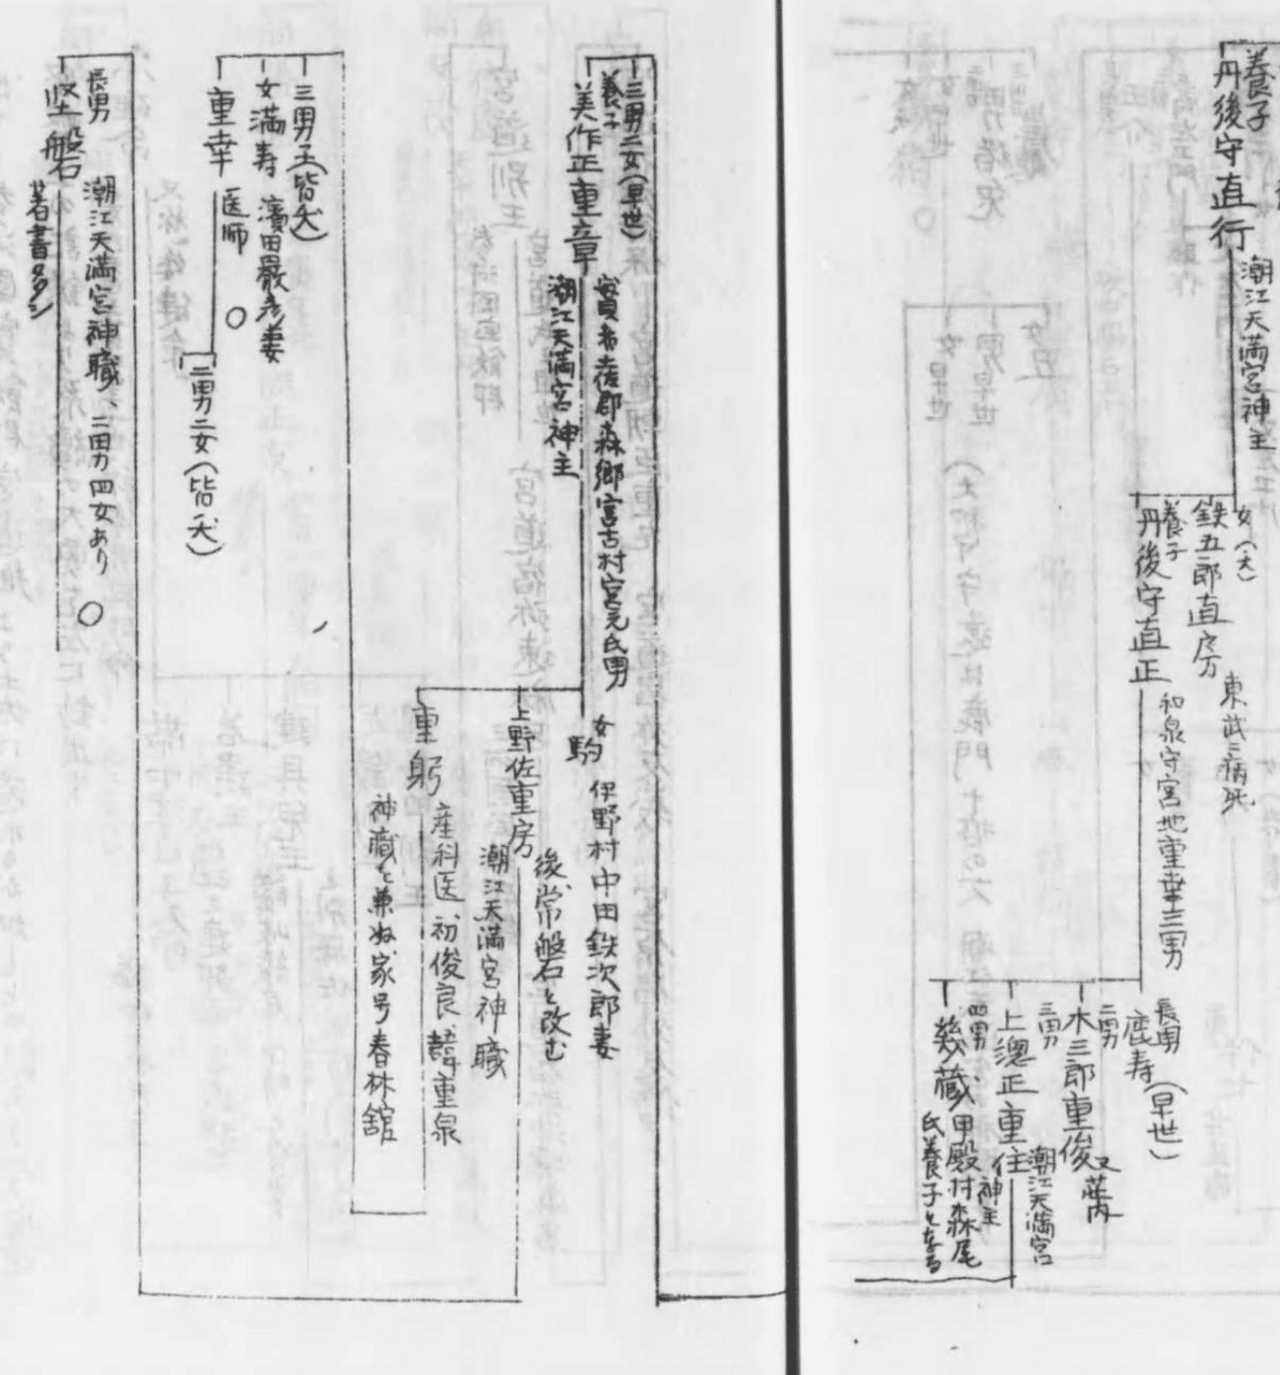 養子
丹後守直行
潮江天満宮神主
女(夭)
鉄五郎直房
東武ニ病死
養子
丹後守直正
和泉守宮地重幸三男
長男
鹿寿(早世)
二男
木三郎重俊
又葉内
三男
上總正重住
潮江天満宮
神主
四男
幾蔵
甲殿村森尾
氏養子となる
三男二女(早世)
養子
美作正重章
實者幡郡森郷宮古村宮元氏男
潮江天満宮神主
女
駒
伊野村中田鉄次郎妻
上野佐重房
後常磐と改む
潮江天満宮神職
重躬
産科医、初俊良、諱重泉
神職と兼ぬ家号春林舘
三男子(皆夭)
女満寿
濱田嚴彦妻
重幸
医師
二男二女(皆夭)
長男
堅磐
潮江天満宮神職、二男四女あり
著書多シ